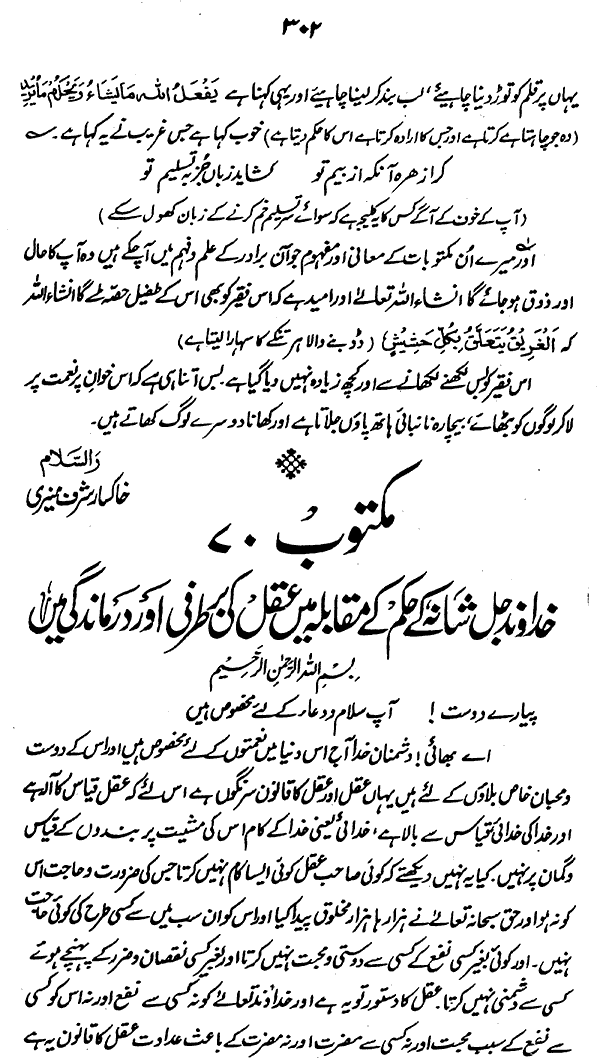 ۳۰۲
یہاں پر قلم کو توڑ دینا چاہیئے، لب بند کر لینا چاہیے اور یہی کہنا ہے یَفْعَلُ اللہ مَا یَشَاءُ وَیَحْکُمُ مَا یُرِیْدُ
(وہ جو چاہتا ہے کرتا ہے اور جس کا ارادہ کرتا ہے اس کا حکم دیتا ہے) خوب کہا ہے جس غریب نے یہ کہا ہے۔
کرا زھرہ آنکہ از بیم تو کشاید زباں جُز بہ تسلیم تو
(آپ کے خوف کے آگے کس کا کلیجہ ہے کہ سوائے سر تسلیم خم کرنے کے زبان کھول سکے)
اور میرے اُن مکتوبات کے معانی اور مفہوم جو آن برادر کے علم و فہم میں آ چکے ہیں وہ آپ کا حال
اور ذوق ہو جائے گا انشاء اللہ تعالےٰ اور امید ہے کہ اس فقیر کو بھی اس کے طفیل حصہ ملے گا انشاء اللہ
کہ اَلْغَرِیْقُ یَتَعَلَّقُ بِکُلِّ حَشِیْشٍ (ڈوبنے والا ہر تنکے کا سہارا لیتا ہے)
اس فقیر کو بس لکھنے لکھانے سے اور کچھ زیادہ نہیں دیا گیا ہے۔ بس اتنا ہی ہے کہ اس خوان پر نعمت پر
لا کر لوگوں کو بٹھائے، بیچارہ نانبائی ہاتھ پاؤں جلاتا ہے اور کھانا دوسرے لوگ کھاتے ہیں۔
وَالسَّلام
خاکسار شرف منیری
مکتوب ۷۰
خداوند جل شانہٗ کے حکم کے مقابلہ میں عقل کی برطرفی اور درماندگی میں
بِسْمِ اللہِ الرَّحْمٰنِ الرَّحِیْمِ
پیارے دوست! آپ سلام و دعاء کے لئے مخصوص ہیں
اے بھائی! دشمنان خدا آج اس دنیا میں نعمتوں کے لئے مخصوص ہیں اور اس کے دوست
و محبان خاص بلاؤں کے لئے ہیں یہاں عقل اور عقل کا قانون سرنگوں ہے اس لئے کہ عقل قیاس کا آلہ ہے
اور خدا کی خدائی قیاس سے بالا ہے، خدائی یعنی خدا کے کام اس کی مشیت پر بندوں کے قیاس
و گمان پر نہیں۔ کیا یہ نہیں دیکھتے کہ کوئی صاحب عقل کوئی ایسا کام نہیں کرتا جس کی ضرورت و حاجت اس
کو نہ ہو اور حق سبحانہ تعالےٰ نے ہزار ہا ہزار مخلوق پیدا کیا اور اس کو ان سب میں سے کسی طرح کی کوئی حاجت
نہیں۔ اور کوئی بغیر کسی نفع کے کسی سے دوستی و محبت نہیں کرتا اور بغیر کسی نقصان و ضرر کے پہنچے ہوئے
کسی سے دشمنی نہیں کرتا۔ عقل کا دستور تو یہ ہے اور خداوند تعالےٰ کو نہ کسی سے نفع اور نہ اس کو کسی
سے نفع کے سبب محبت اور نہ کسی سے مضرت اور نہ مضرت کے باعث عداوت عقل کا قانون یہ ہے